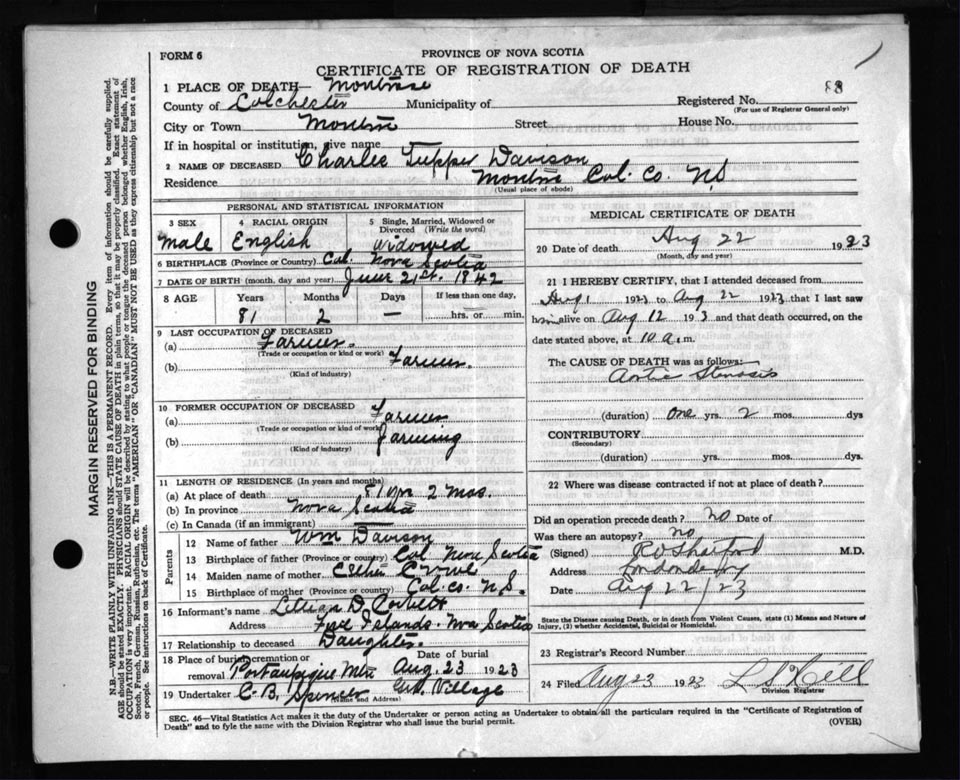 FORM 6
PROVINCE OF NOVA SCOTIA
CERTIFICATE OF REGISTRATION OF DEATH
1 PLACE OF DEATH— Montrose
County of Colchester Municipality of
Registered No. 83
(For use of Registrar General only)
City or Town Montrose Street House No.
If in hospital or institution, give name
2 NAME OF DECEASED Charles Tupper Davison
Residence Montrose Col. Co. N.S
(Usual place of abode)
PERSONAL AND STATISTICAL INFORMATION
3 SEX Male
4 RACIAL ORIGIN English
5 Single, Married, Widowed or Divorced (Write the word) Widowed
6 BIRTHPLACE (Province or Country) Col. Nova Scotia
7 DATE OF BIRTH (month, day and year) June 21st. 1842
8 AGE Years Months Days If less than one day,
81 2 — hrs. or min.
9 LAST OCCUPATION OF DECEASED
(a) Farmer
(Trade or occupation or kind or work)
(b) Farmer.
(Kind of industry)
10 FORMER OCCUPATION OF DECEASED
(a) Farmer
(Trade or occupation or kind of work)
(b) Farming
(Kind of industry)
11 LENGTH OF RESIDENCE (In years and months)
(a) At place of death 81 yrs 2 mos.
(b) In province Nova Scotia
(c) In Canada (if an immigrant) —
Parents
12 Name of father Wm Davison
13 Birthplace of father (Province or country) Col Nova Scotia
14 Maiden name of mother Esther Crowe
15 Birthplace of mother (Province or country) Col. co. N.S.
16 Informant's name Lillian D. Corbett
Address Five Islands. Nova Scotia
17 Relationship to deceased Daughter
18 Place of burial, cremation or removal Portaupique Mtn
Date of burial Aug. 23 1923
19 Undertaker C. B. Spencer Village
(Name and Address)
MEDICAL CERTIFICATE OF DEATH
20 Date of death Aug 22 1923
(Month, day and year)
21 I HEREBY CERTIFY, that I attended deceased from
Aug 1 1923 to Aug 22 1923 that I last saw
him alive on Aug 12 1923 and that death occurred, on the
date stated above, at 10 a.m.
The CAUSE OF DEATH was as follows:
Aortic Stenosis
(duration) one yrs. 2 mos. dys
CONTRIBUTORY
(Secondary)
(duration) yrs. mos. dys.
22 Where was disease contracted if not at place of death?
Did an operation precede death? No Date of
Was there an autopsy? no
(Signed) M.D.
Address Londonderry
Date Aug 22/23
State the Disease causing Death, or in death from Violent Causes, state (1) Means and Nature of Injury, (2) whether Accidental, Suicidal or Homicidal.
23 Registrar's Record Number
24 Filed Aug 23 1923
Division Registrar
SEC. 46—Vital Statistics Act makes it the duty of the Undertaker or person acting as Undertaker to obtain all the particulars required in the "Certificate of Registration of
Death" and to fyle the same with the Division Registrar who shall issue the burial permit.
(OVER)
MARGIN RESERVED FOR BINDING
N.B.—WRITE PLAINLY WITH UNFADING INK—THIS IS A PERMANENT RECORD. Every item of information should be carefully supplied.
AGE should be stated EXACTLY. PHYSICIANS should STATE CAUSE OF DEATH in plain terms, so that it may be properly classified. Exact statement of
OCCUPATION is very important. RACIAL ORIGIN will be described by stating to what people or tongue the deceased person belonged whether English, Irish,
Scotch, French, German, Russian, Ruthenian, etc. The terms "AMERICAN" OR "CANADIAN" MUST NOT BE USED as they express citizenship but not a race
or people. See instructions on back of Certificate.